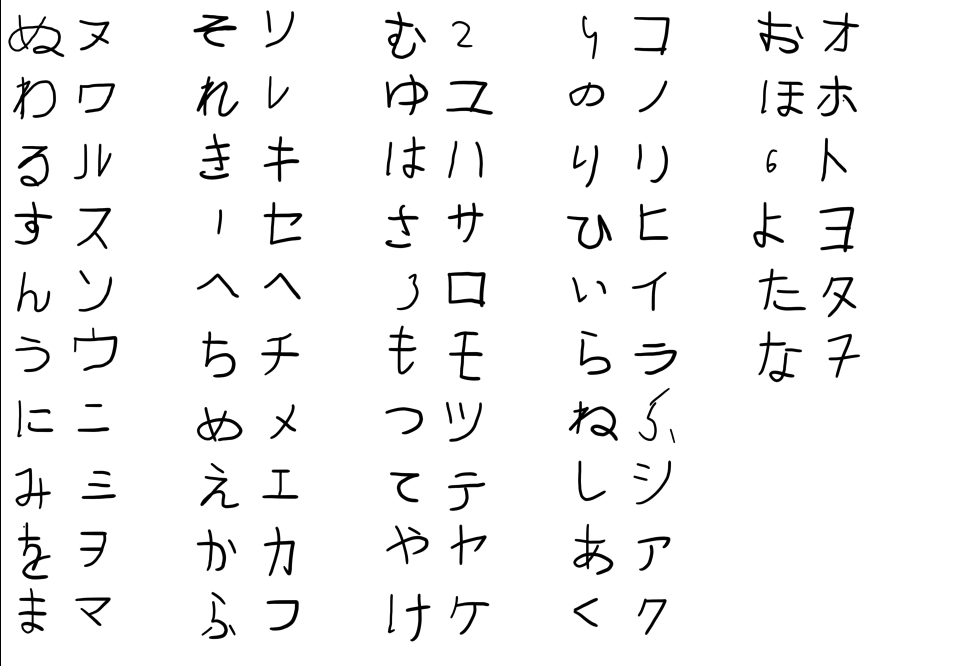 ぬ ヌ そ ソ む 2 コ お オ
わ ワ れ レ ゆ ユ の ノ ほ ホ
る ル き キ は ハ り リ 6 ト
す ス 1 セ さ サ ひ ヒ よ ヨ
ん ソ へ ヘ 3 ロ い イ た タ
う ウ ち チ も モ ら ラ な
に ニ め メ つ ツ ね ふ
み ミ え エ て テ し シ
を ヲ か カ や ヤ あ ア
ま マ ふ フ け ケ く ク